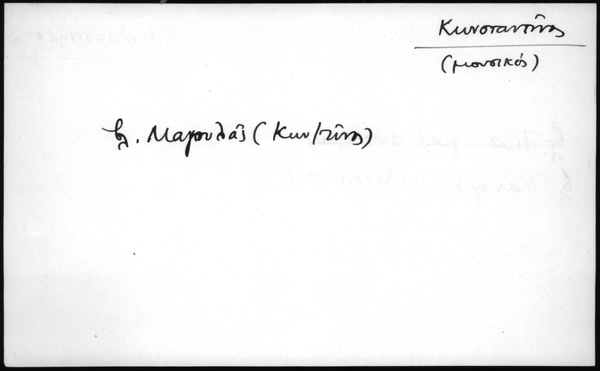 Κωνσταντῖνος
(μουσικός)
βλ. Μαγουλᾶς (Κων/τῖνος)